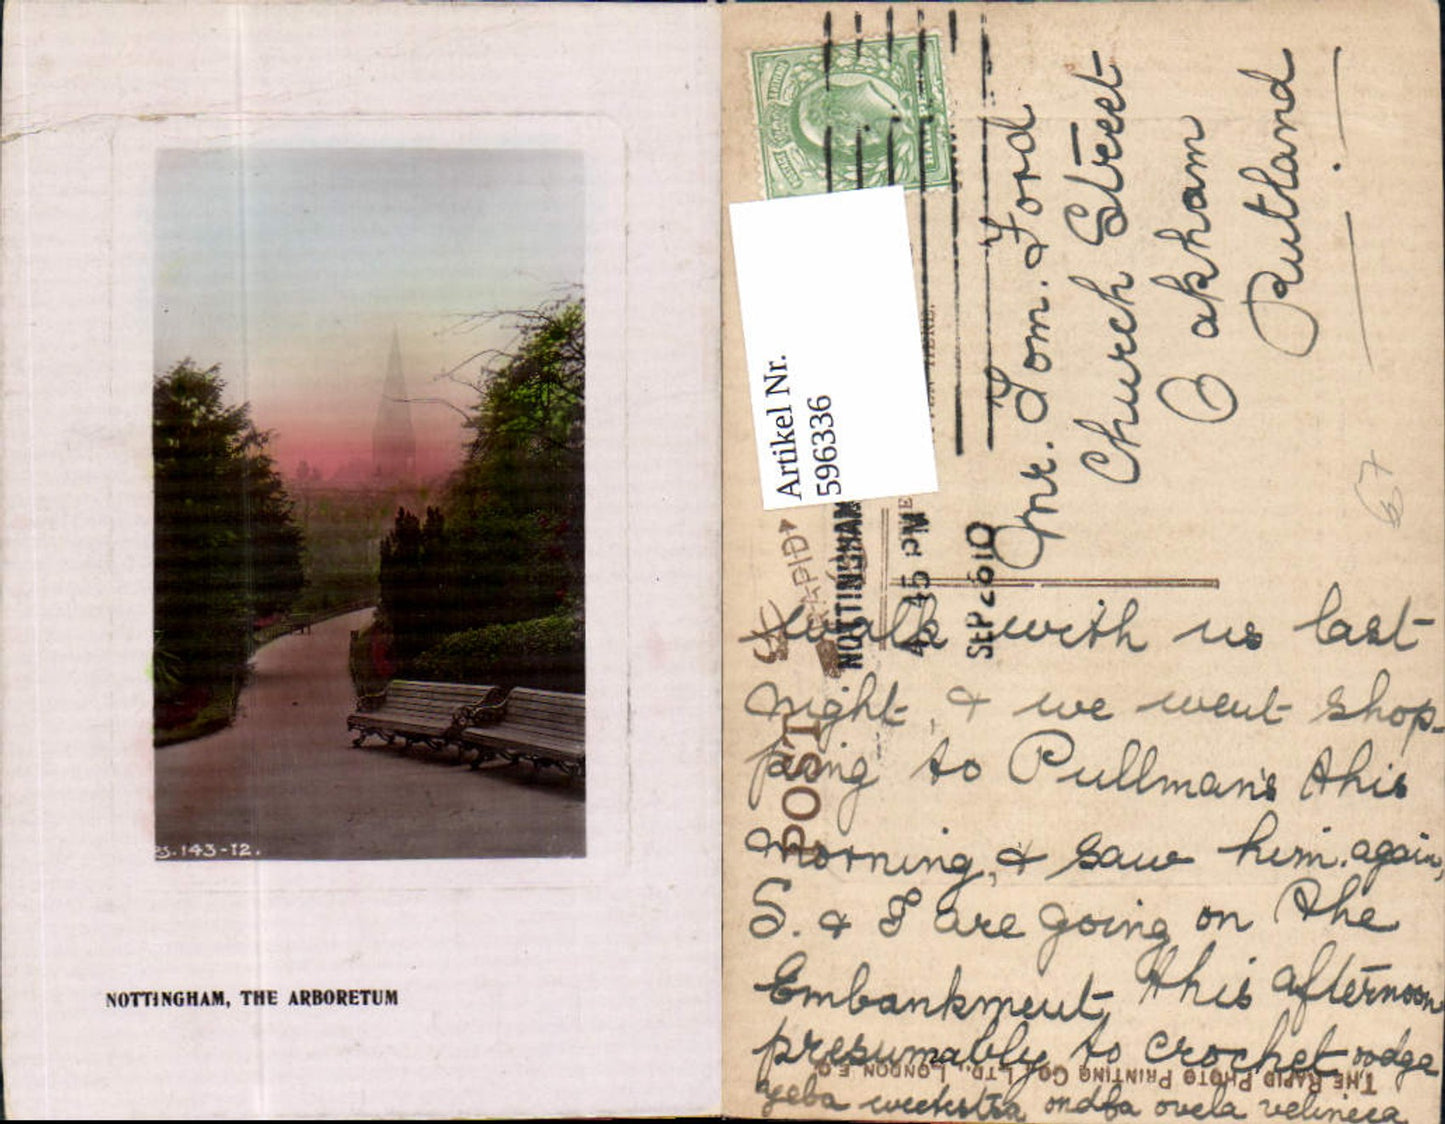 PS. 143-12.
NOTTINGHAM, THE ARBORETUM
Artikel Nr.
596336
NOTTINGHAM
4 45 PM
SEP 26 10
Mr. Tom. Ford
Church Street
Oakham
Rutland
67
RAPID
POST
walk with us last
night, & we went shop-
ping to Pullman's this
morning, & saw him. again,
S. & I are going on the
Embankment, this afternoon
presumably to crochet
THE RAPID PHOTO PRINTING CO., LTD., LONDON E.C.